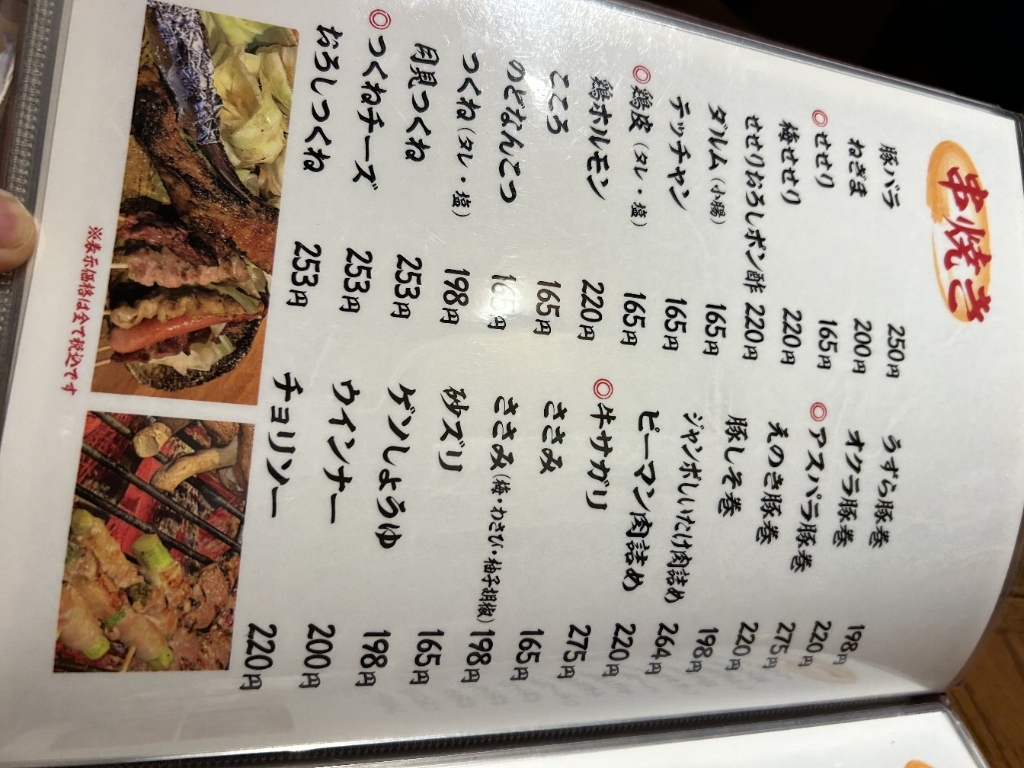 串焼き
豚バラ 250円
ねぎま 200円
◎せせり 165円
梅せせり 220円
せせりおろしポン酢 220円
タルム（小腸） 165円
テッチャン 165円
◎鶏皮（タレ・塩） 165円
鶏ホルモン 220円
こころ 165円
のどなんこつ 165円
つくね（タレ・塩） 198円
月見つくね 253円
◎つくねチーズ 253円
おろしつくね 253円
うずら豚巻 198円
オクラ豚巻 220円
◎アスパラ豚巻 275円
えのき豚巻 220円
豚しそ巻 198円
ジャンボしいたけ肉詰め 264円
ピーマン肉詰め 220円
◎牛サガリ 275円
ささみ 165円
ささみ（梅・わさび・柚子胡椒） 198円
砂ズリ 165円
ゲンしょうゆ 198円
ウインナー 200円
チョリソー 220円
※表示価格は全て税込です